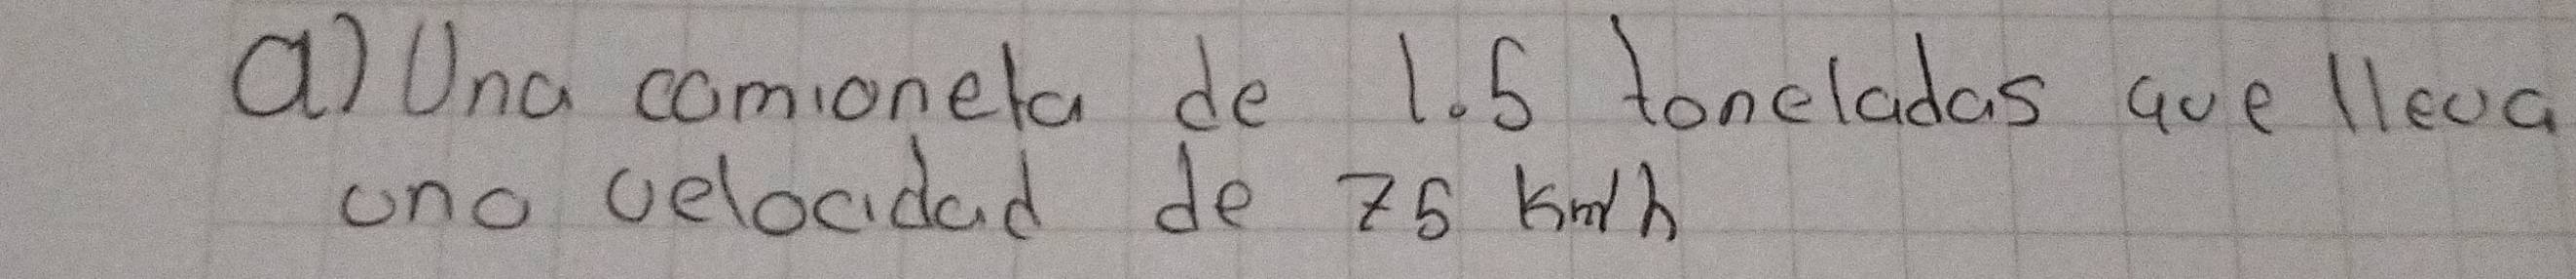 a) Una camioneta de 1.5 toneladas que lleva
una velocidad de 75 Km/h